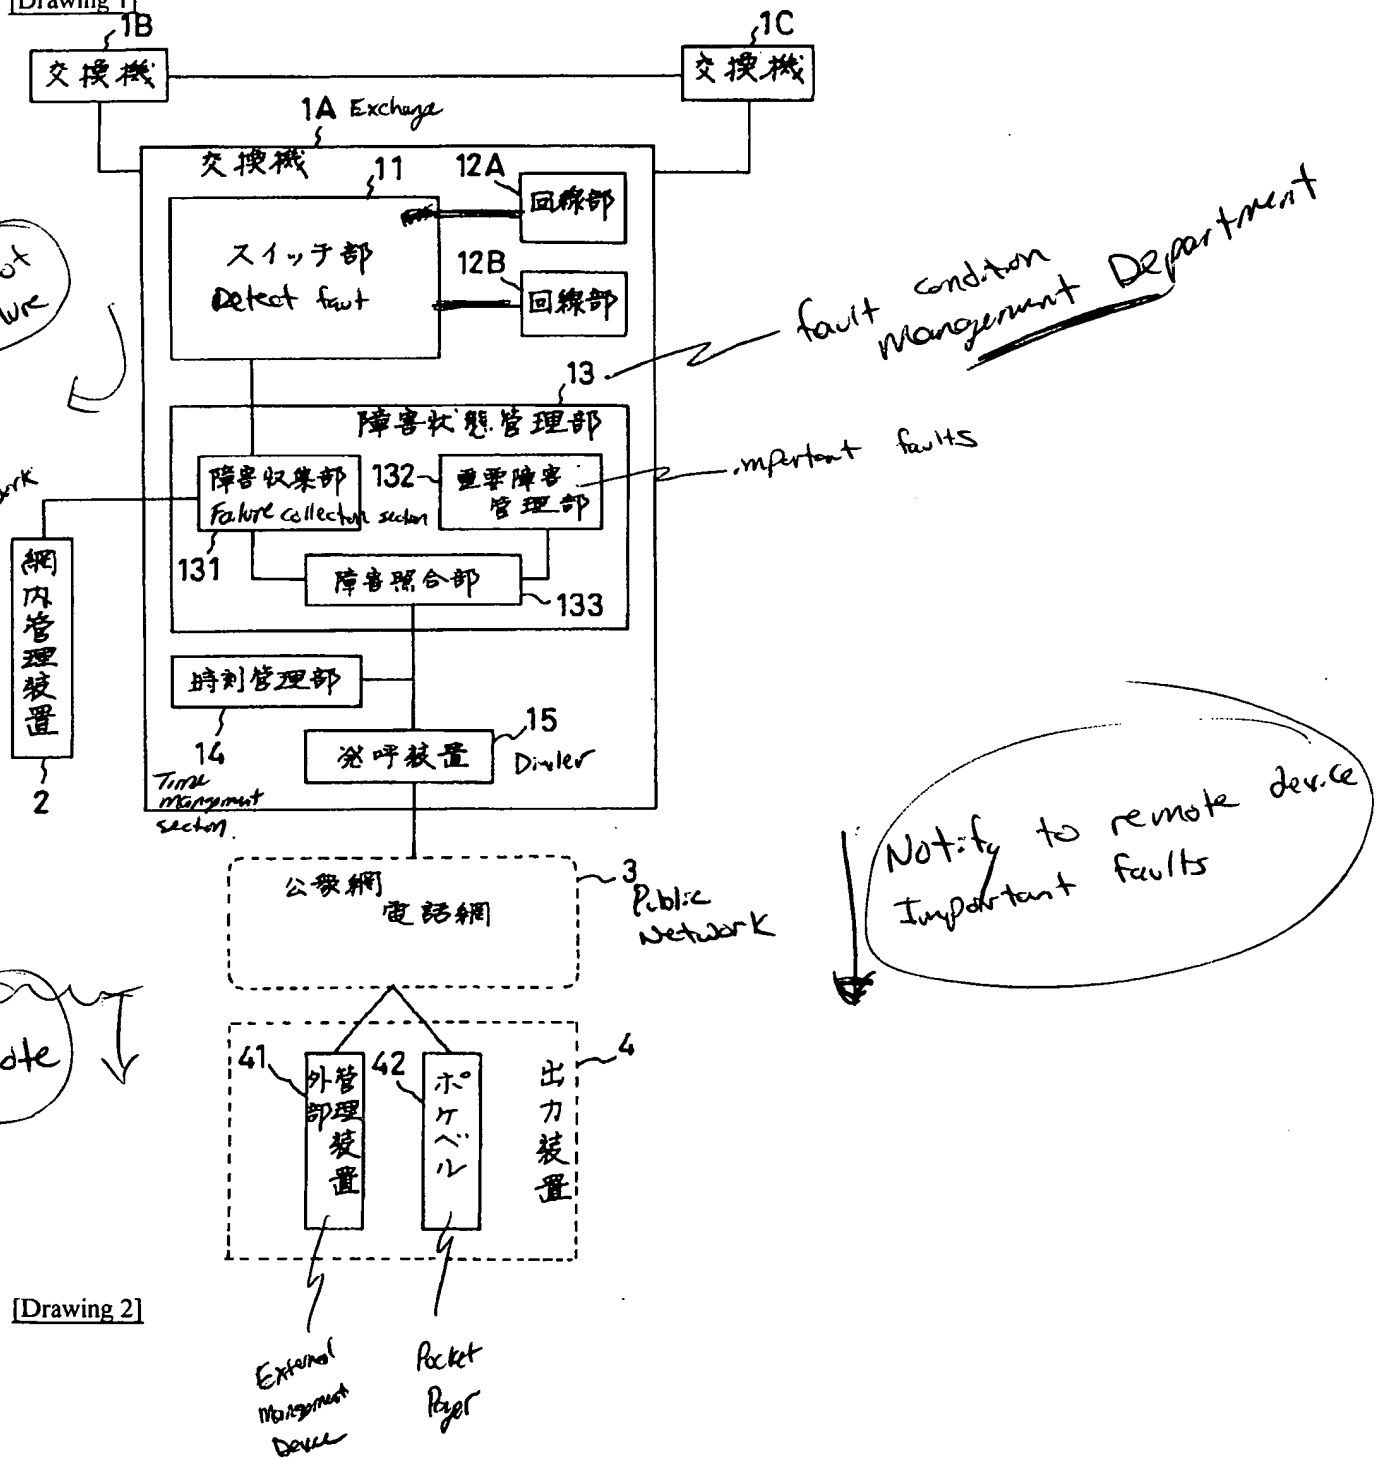 [Drawing 1]
1B
交換機
1C
交換機
1A Exchange
交換機
11
スイッチ部
Detect faut
12A
回線部
12B
回線部
fault condition
Mangement Department
13
障害状態管理部
障害収集部
Failure collection section
131
132
重要障害
管理部
important faults
障害照合部
133
網内管理装置
2
時刻管理部
14
Time
mangement
section.
15
発呼装置
Dialer
3
公衆網
電話網
Public
Network
Notify to remote device
Important faults
4
出力装置
41
外部管理装置
42
ポケベル
External
Mangement
Device
Pocket
Pager
[Drawing 2]